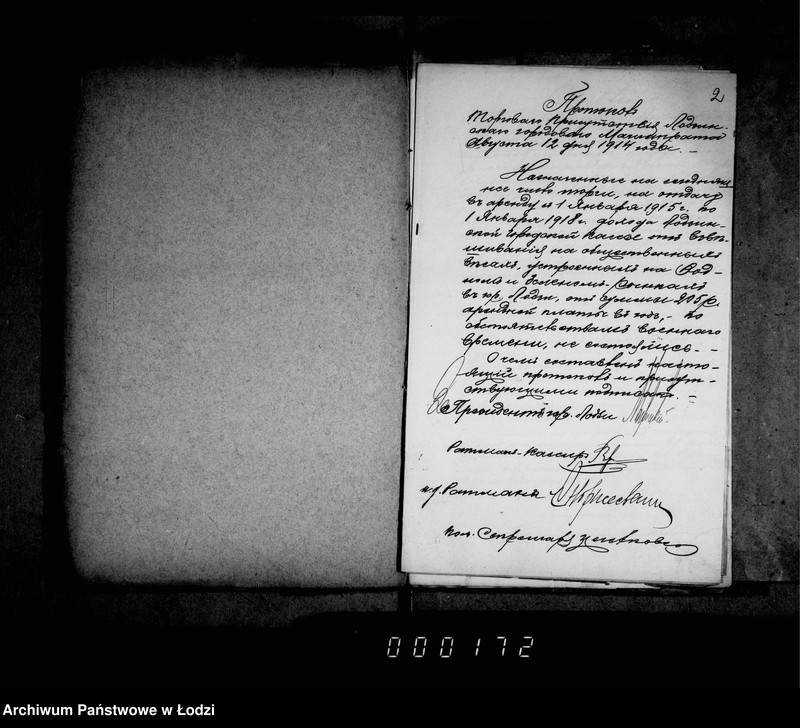 2
Протоколъ
Торговаго Присутствія Лодзин-
скаго городового Магистрата
Августа 12 дня 1914 года. –
Назначенные на сегодняш-
нее число торги, на отдачу
въ аренду съ 1 Января 1915 г. по
1 Января 1918 г. дохода Лодзин-
ской городской кассы отъ взвѣ-
шиванія на общественныхъ
вѣсахъ, устроенныхъ на Вод-
номъ и рынкахъ
въ гор. Лодзи, отъ суммы 205 р.
арендной платы въ годъ, – по
обстоятельствамъ военнаго
времени, не состоялись. –
О чемъ составленъ насто-
ящій протоколъ и присут-
ствующими подписанъ. –
Президентъ гор. Лодзи
Ратманъ-Кассиръ
и. д. Ратмана
пом. Секретаря
000172
Archiwum Państwowe w Łodzi